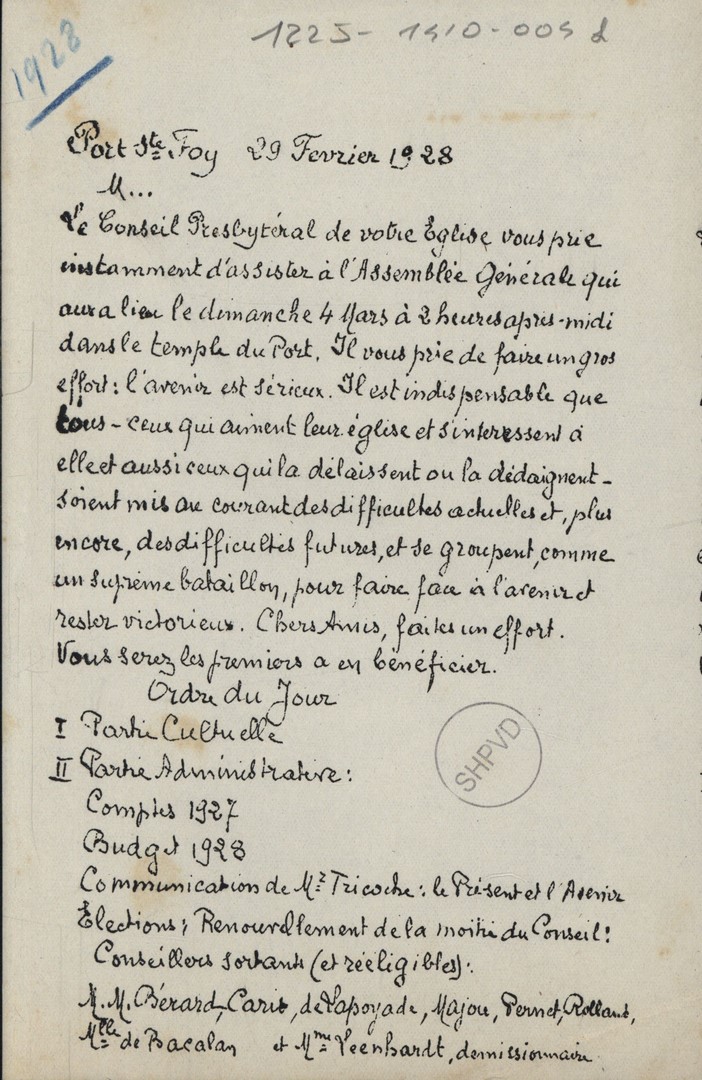 1225-1910-009 d
1928
Port Ste Foy 29 Fevrier 1928
M...
Le Conseil Presbytéral de votre Eglise vous prie
instamment d'assister à l'Assemblée Générale qui
aura lieu le dimanche 4 Mars à 2 heures apres-midi
dans le temple du Port. Il vous prie de faire un gros
effort: l'avenir est sérieux. Il est indispensable que
tous - ceux qui aiment leur église et s'interessent à
elle et aussi ceux qui la délaissent ou la dédaignent -
soient mis au courant des difficultés actuelles et, plus
encore, des difficultés futures, et se groupent, comme
un suprême bataillon, pour faire face à l'avenir et
rester victorieux. Chers Amis, faites un effort.
Vous serez les premiers a en bénéficier.
Ordre du Jour
I Partie Cultuelle
II Partie Administrative:
Comptes 1927
Budget 1928
Communication de Mr Tricoche: le Présent et l'Avenir
Elections; Renouvellement de la moitié du Conseil:
Conseillers sortants (et rééligibles):
M.M. Bérard, Caris, de Lapoyade, Majou, Pernet, Rolland,
Mlle de Bacalan et Mme Leenhardt, demissionnaire
SHPVD